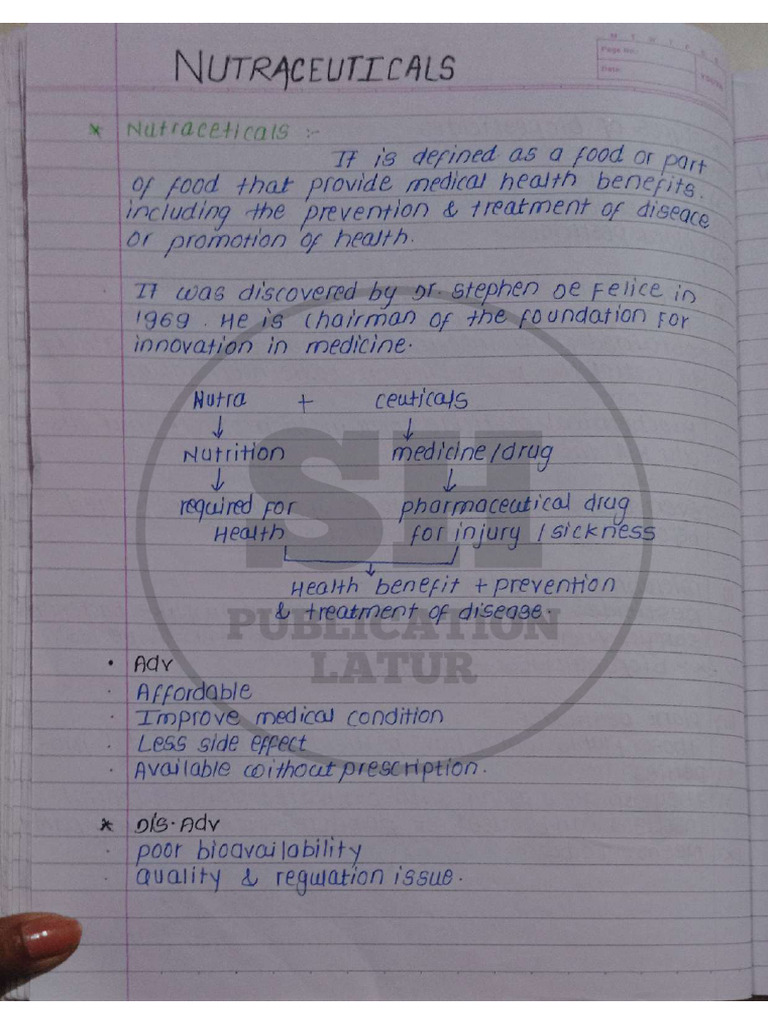 M T W T F S S
Page No.:
Date:
YOUVA
NUTRACEUTICALS
* Nutraceticals :-
It is defined as a food or part
of food that provide medical health benefits.
including the prevention & treatment of diseace
or promotion of health.
It was discovered by Dr. Stephen De Felice in
1969. He is chairman of the foundation for
innovation in medicine.
Nutra + ceuticals
↓ ↓
Nutrition medicine/drug
↓ ↓
required for pharmaceutical drug
Health for injury / sickness
Health benefit + prevention
& treatment of disease.
• Adv
· Affordable
· Improve medical condition
· Less side effect
· Available without prescription.
* Dis-Adv
· poor bioavailability
· quality & regulation issue.
SH
PUBLICATION
LATUR